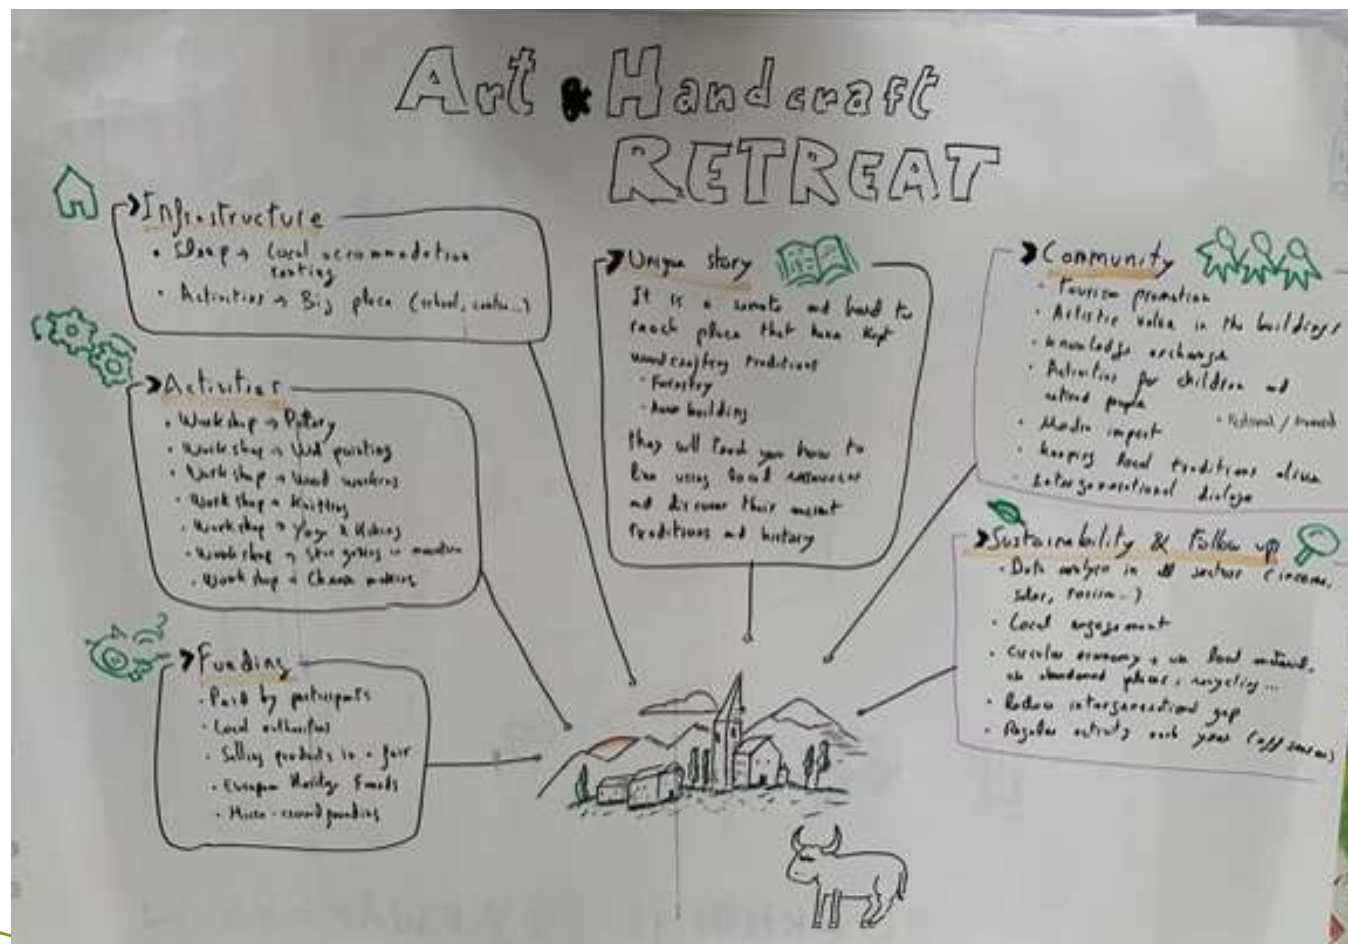 Art & Handcraft
RETREAT
Infrastructure
• Sleep → Local accommodation
renting
• Activities → Big place (school, ...)
Activities
• Workshop → Pottery
• Workshop → painting
• Workshop → Wood working
• Workshop → Knitting
• Workshop → Yoga & Hiking
• Workshop → Star gazing in mountain
• Workshop → Cheese making
Funding
• Paid by participants
• Local authorities
• Selling products in a fair
• Funds
• Micro-crowdfunding
Unique story
It is a remote and hard to
reach place that have kept
woodcrafting traditions
• Forestry
• building
They will teach you how to
live using local resources
and discover their ancient
traditions and history
Community
• Tourism promotion
• Artistic value in the buildings
• Knowledge exchange
• Activities for children and
retired people
• Media impact
• Keeping local traditions alive
• Intergenerational dialoge
Sustainability & Follow up
• Data analyse in all sectors (income,
sales, tourism...)
• Local engagement
• Circular economy → use local material,
use abandoned places, recycling...
• Reduce intergenerational gap
• Regular activity each year (off season)